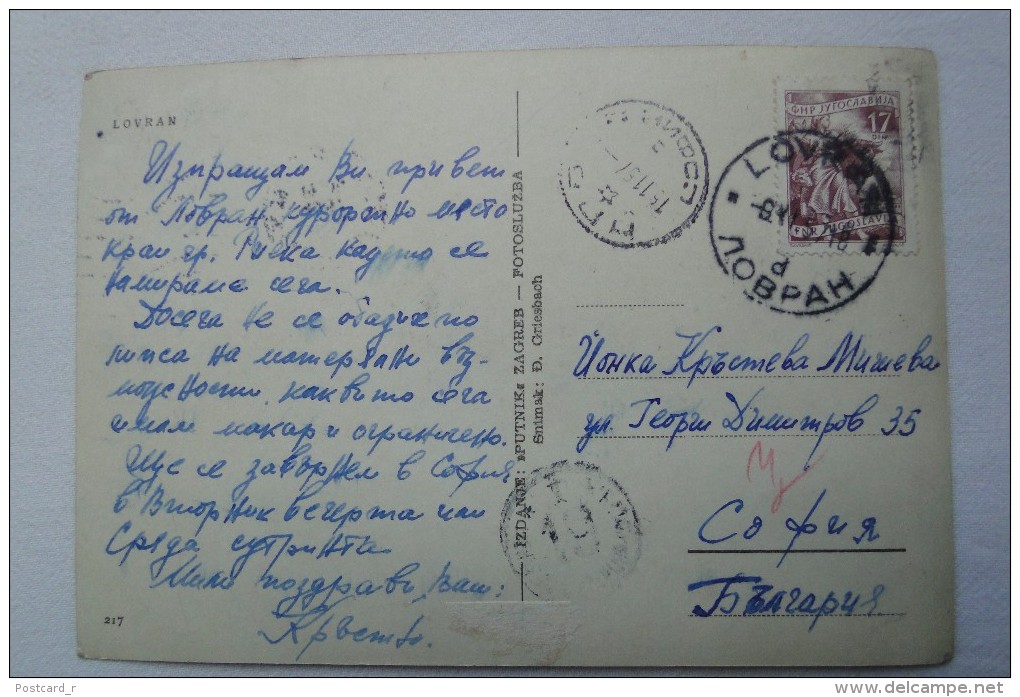 LOVRAN
Изпращам Ви привет
от Ловран курортно место
край гр. Риека където се
намираме сега.
Досега не се обадихме по
липса на материални въз-
можности, каквито сега
имам макар и ограничено.
Ще се завърнем в София
в Вторник вечерта или
Сряда сутринта
Мили поздрави, Ваш:
Кръстю.
217
IZDANJE: »PUTNIK« ZAGREB — FOTOSLUŽBA
Snimak: Đ. Griesbach
ФНР ЈУГОСЛАВИЈА
17
DIN
FNR JUGOSLAVIJA
LOVRAN
ЛОВРАН
Йонка Кръстева Мишева
ул. Георги Димитров 35
София
България
Postcard_r
www.delcampe.net